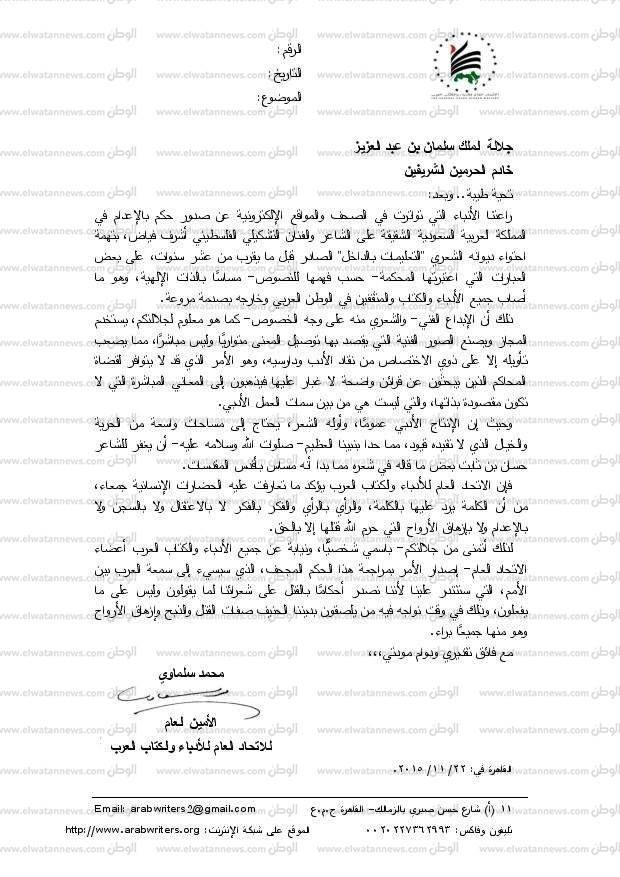 الرقم:
التاريخ:
الموضوع:
جلالة الملك سلمان بن عبد العزيز
خادم الحرمين الشريفين
تحية طيبة.. وبعد:
راعتنا الأنباء التي تواترت في الصحف والمواقع الإلكترونية عن صدور حكم بالإعدام في
المملكة العربية السعودية الشقيقة على الشاعر والفنان التشكيلي الفلسطيني أشرف فياض، بتهمة
احتواء ديوانه الشعري "التعليمات بالداخل" الصادر قبل ما يقرب من عشر سنوات، على بعض
العبارات التي اعتبرتها المحكمة- حسب فهمها للنصوص- مساسًا بالذات الإلهية، وهو ما
أصاب جميع الأدباء والكتاب والمثقفين في الوطن العربي وخارجه بصدمة مروعة.
ذلك أن الإبداع الفني- والشعري منه على وجه الخصوص- كما هو معلوم لجلالتكم، يستخدم
المجاز ويصنع الصور الفنية التي يقصد بها توصيل المعنى متواريًا وليس مباشرًا، مما يصعب
تأويله إلا على ذوي الاختصاص من نقاد الأدب ودارسيه، وهو الأمر الذي قد لا يتوافر لقضاة
المحاكم الذين يبحثون عن قرائن واضحة لا غبار عليها فيذهبون إلى المعاني المباشرة التي لا
تكون مقصودة بذاتها، والتي ليست هي من بين سمات العمل الأدبي.
وحيث إن الإنتاج الأدبي عمومًا، وأوله الشعر، يحتاج إلى مساحات واسعة من الحرية
والخيال الذي لا تقيده قيود، مما حدا بنبينا العظيم- صلوات الله وسلامه عليه- أن يغفر للشاعر
حسان بن ثابت بعض ما قاله في شعره مما بدا أنه مساس بأقدس المقدسات.
فإن الاتحاد العام للأدباء والكتاب العرب يؤكد ما تعارفت عليه الحضارات الإنسانية جمعاء،
من أن الكلمة يرد عليها بالكلمة، والرأي بالرأي والفكر بالفكر لا بالاعتقال ولا بالسجن ولا
بالإعدام ولا بإزهاق الأرواح التي حرم الله قتلها إلا بالحق.
لذلك أتمنى من جلالتكم- باسمي شخصيًّا، ونيابة عن جميع الأدباء والكتاب العرب أعضاء
الاتحاد العام- إصدار الأمر بمراجعة هذا الحكم المجحف، الذي سيسيء إلى سمعة العرب بين
الأمم، التي ستتندر علينا لأننا نصدر أحكامًا بالقتل على شعرائنا لما يقولون وليس على ما
يفعلون، وذلك في وقت نواجه فيه من يلصقون بديننا الحنيف صفات القتل والذبح وإزهاق الأرواح
وهو منها جميعًا براء.
مع فائق تقديري ودوام مودتي،،،
محمد سلماوي
الأمين العام
للاتحاد العام للأدباء والكتاب العرب
القاهرة في: ٢٢/ ١١/ ٢٠١٥.
١١ (أ) شارع حسن صبري بالزمالك- القاهرة ج.م.ع Email: arabwriters2@gmail.com
تليفون وفاكس: ٠٠٢٠٢٢٧٣٦٢٩٩٣ الموقع على شبكة الإنترنت: http://www.arabwriters.org
الوطن www.elwatannews.com